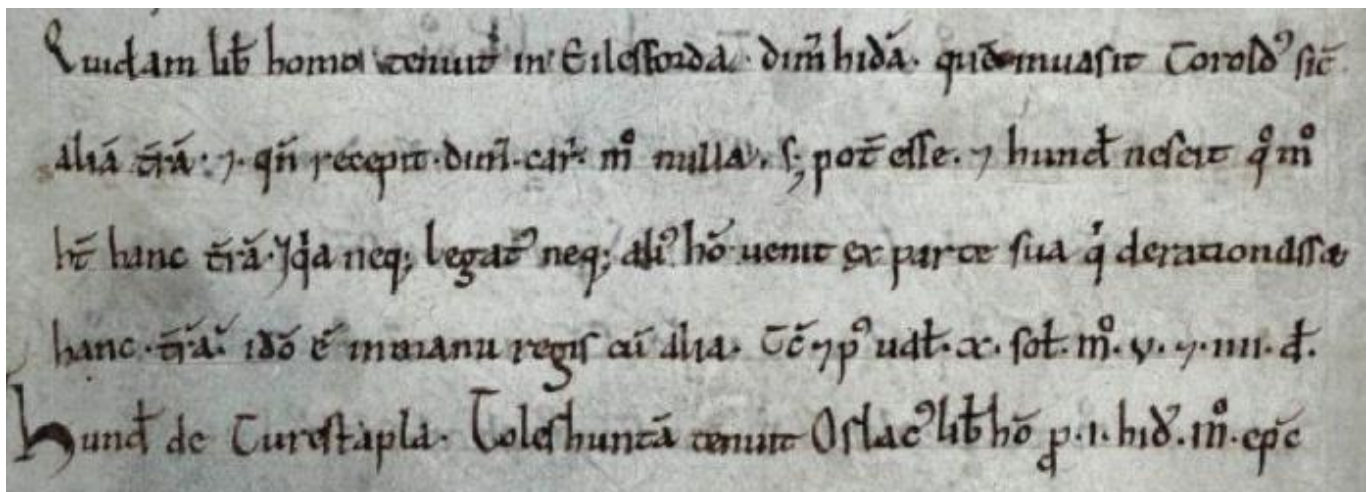 Quidam lib̄ homo tenuit in Eilesforda. dim̄ hidā. quā inuasit Torold᷒ sic̄
aliā tr̄ā: ⁊. qn̄ recepit. dim̄. car̄. m̊ nulla. s; pot̄ esse. ⁊ hund̄ nescit qͦm̊
ht̄ hanc tr̄ā. ⁊ q̇a neq; legat᷒ neq; ali᷒ hō uenit ex parte sua q̇ derationasset
hanc. tr̄ā. idō ē in manu regis cū alia. Tc̄ ⁊ p᷒ ual̄. x. sol̄. m̊. v. ⁊. iiii. d̄.
Hund̄ de Turestapla. Toleshuntā tenuit Oslac᷒ lib̄ hō ꝑ. i. hid̄. m̊. ep̄c